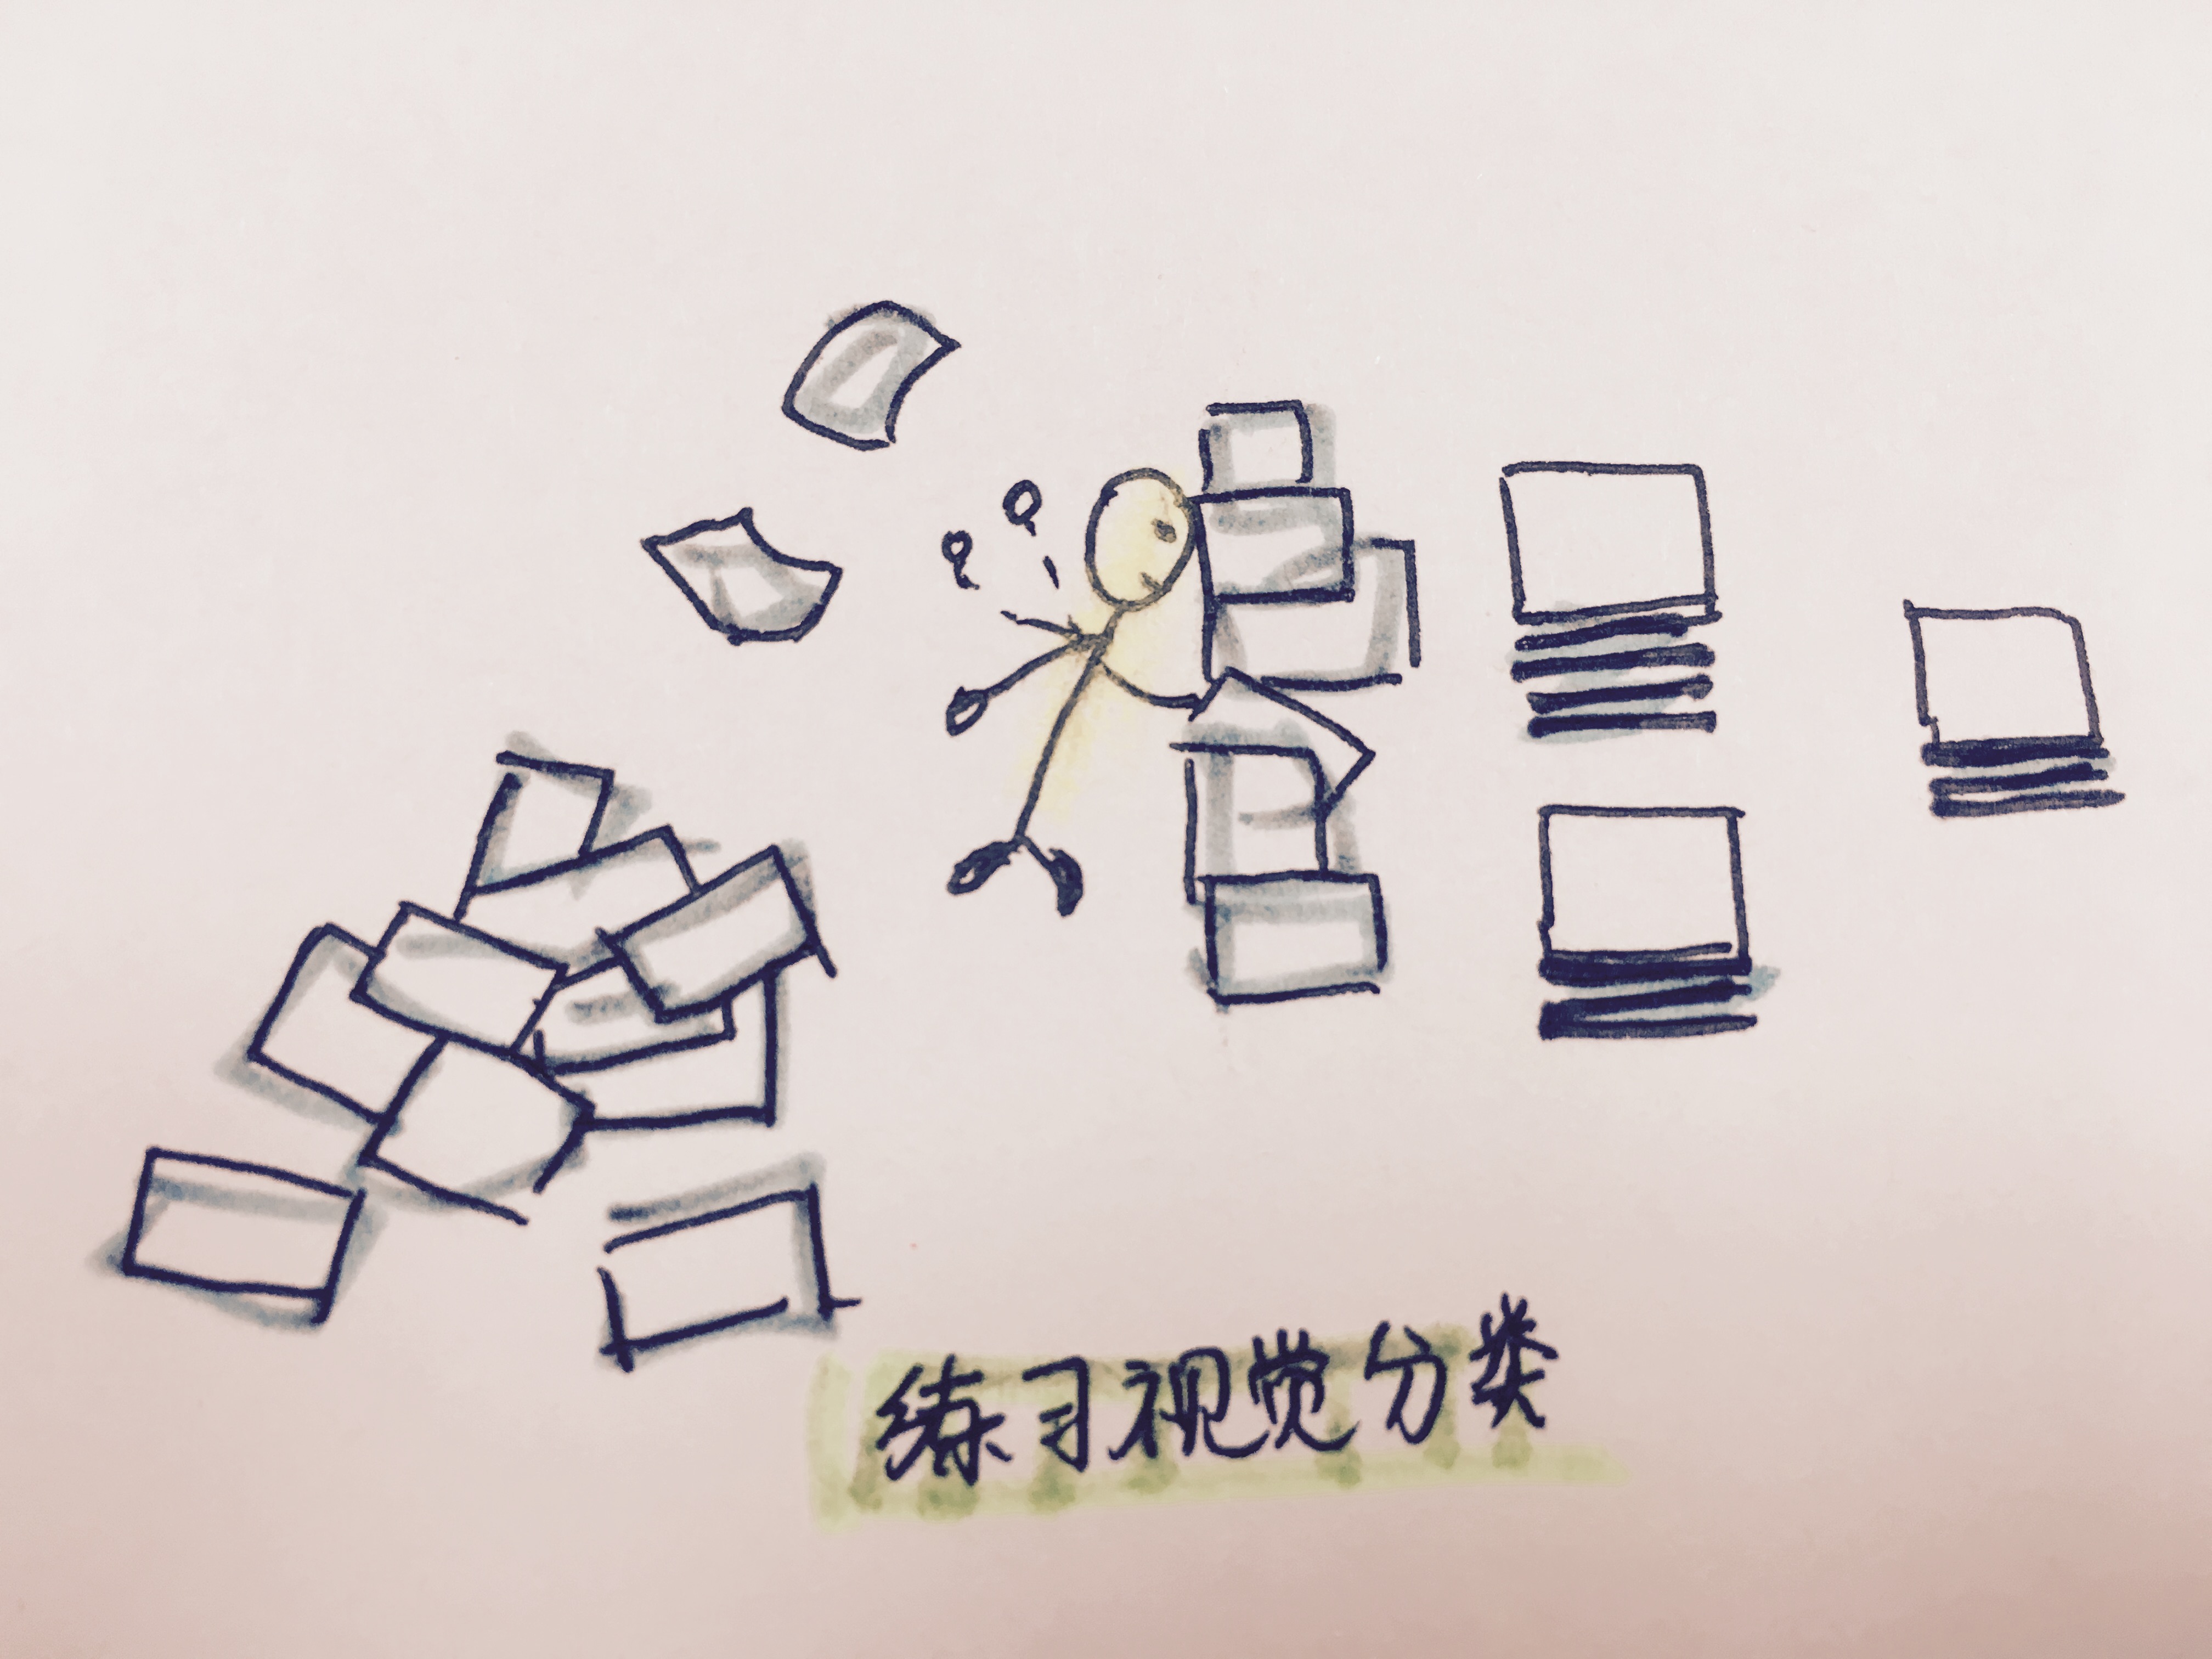 练习视觉分类